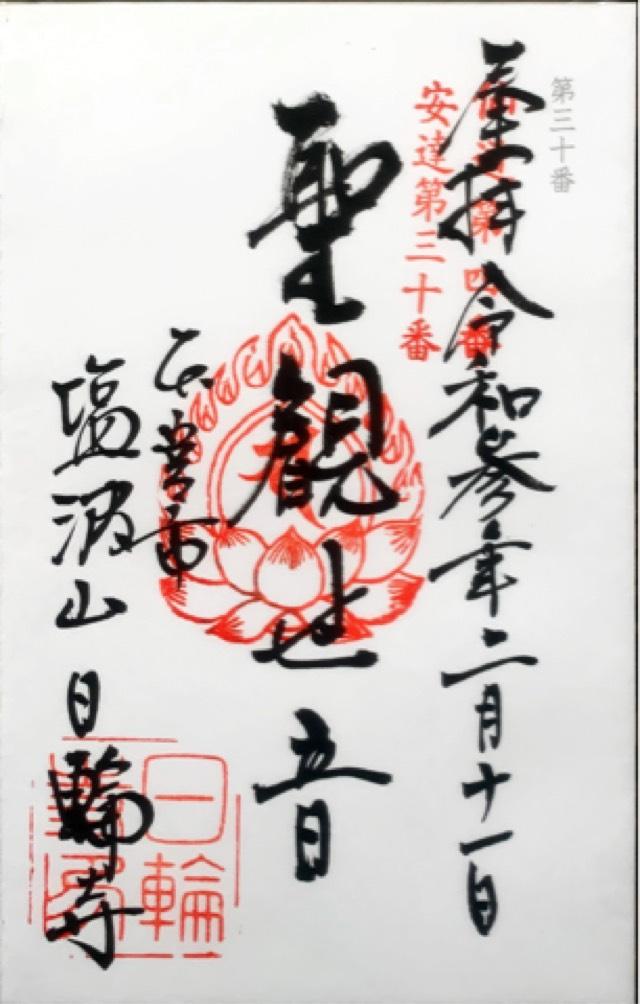 第三十番
奉拝 令和参年二月十一日
仙道第四番
安達第三十番
聖観世音
本宮市
塩沢山 日輪寺
日輪